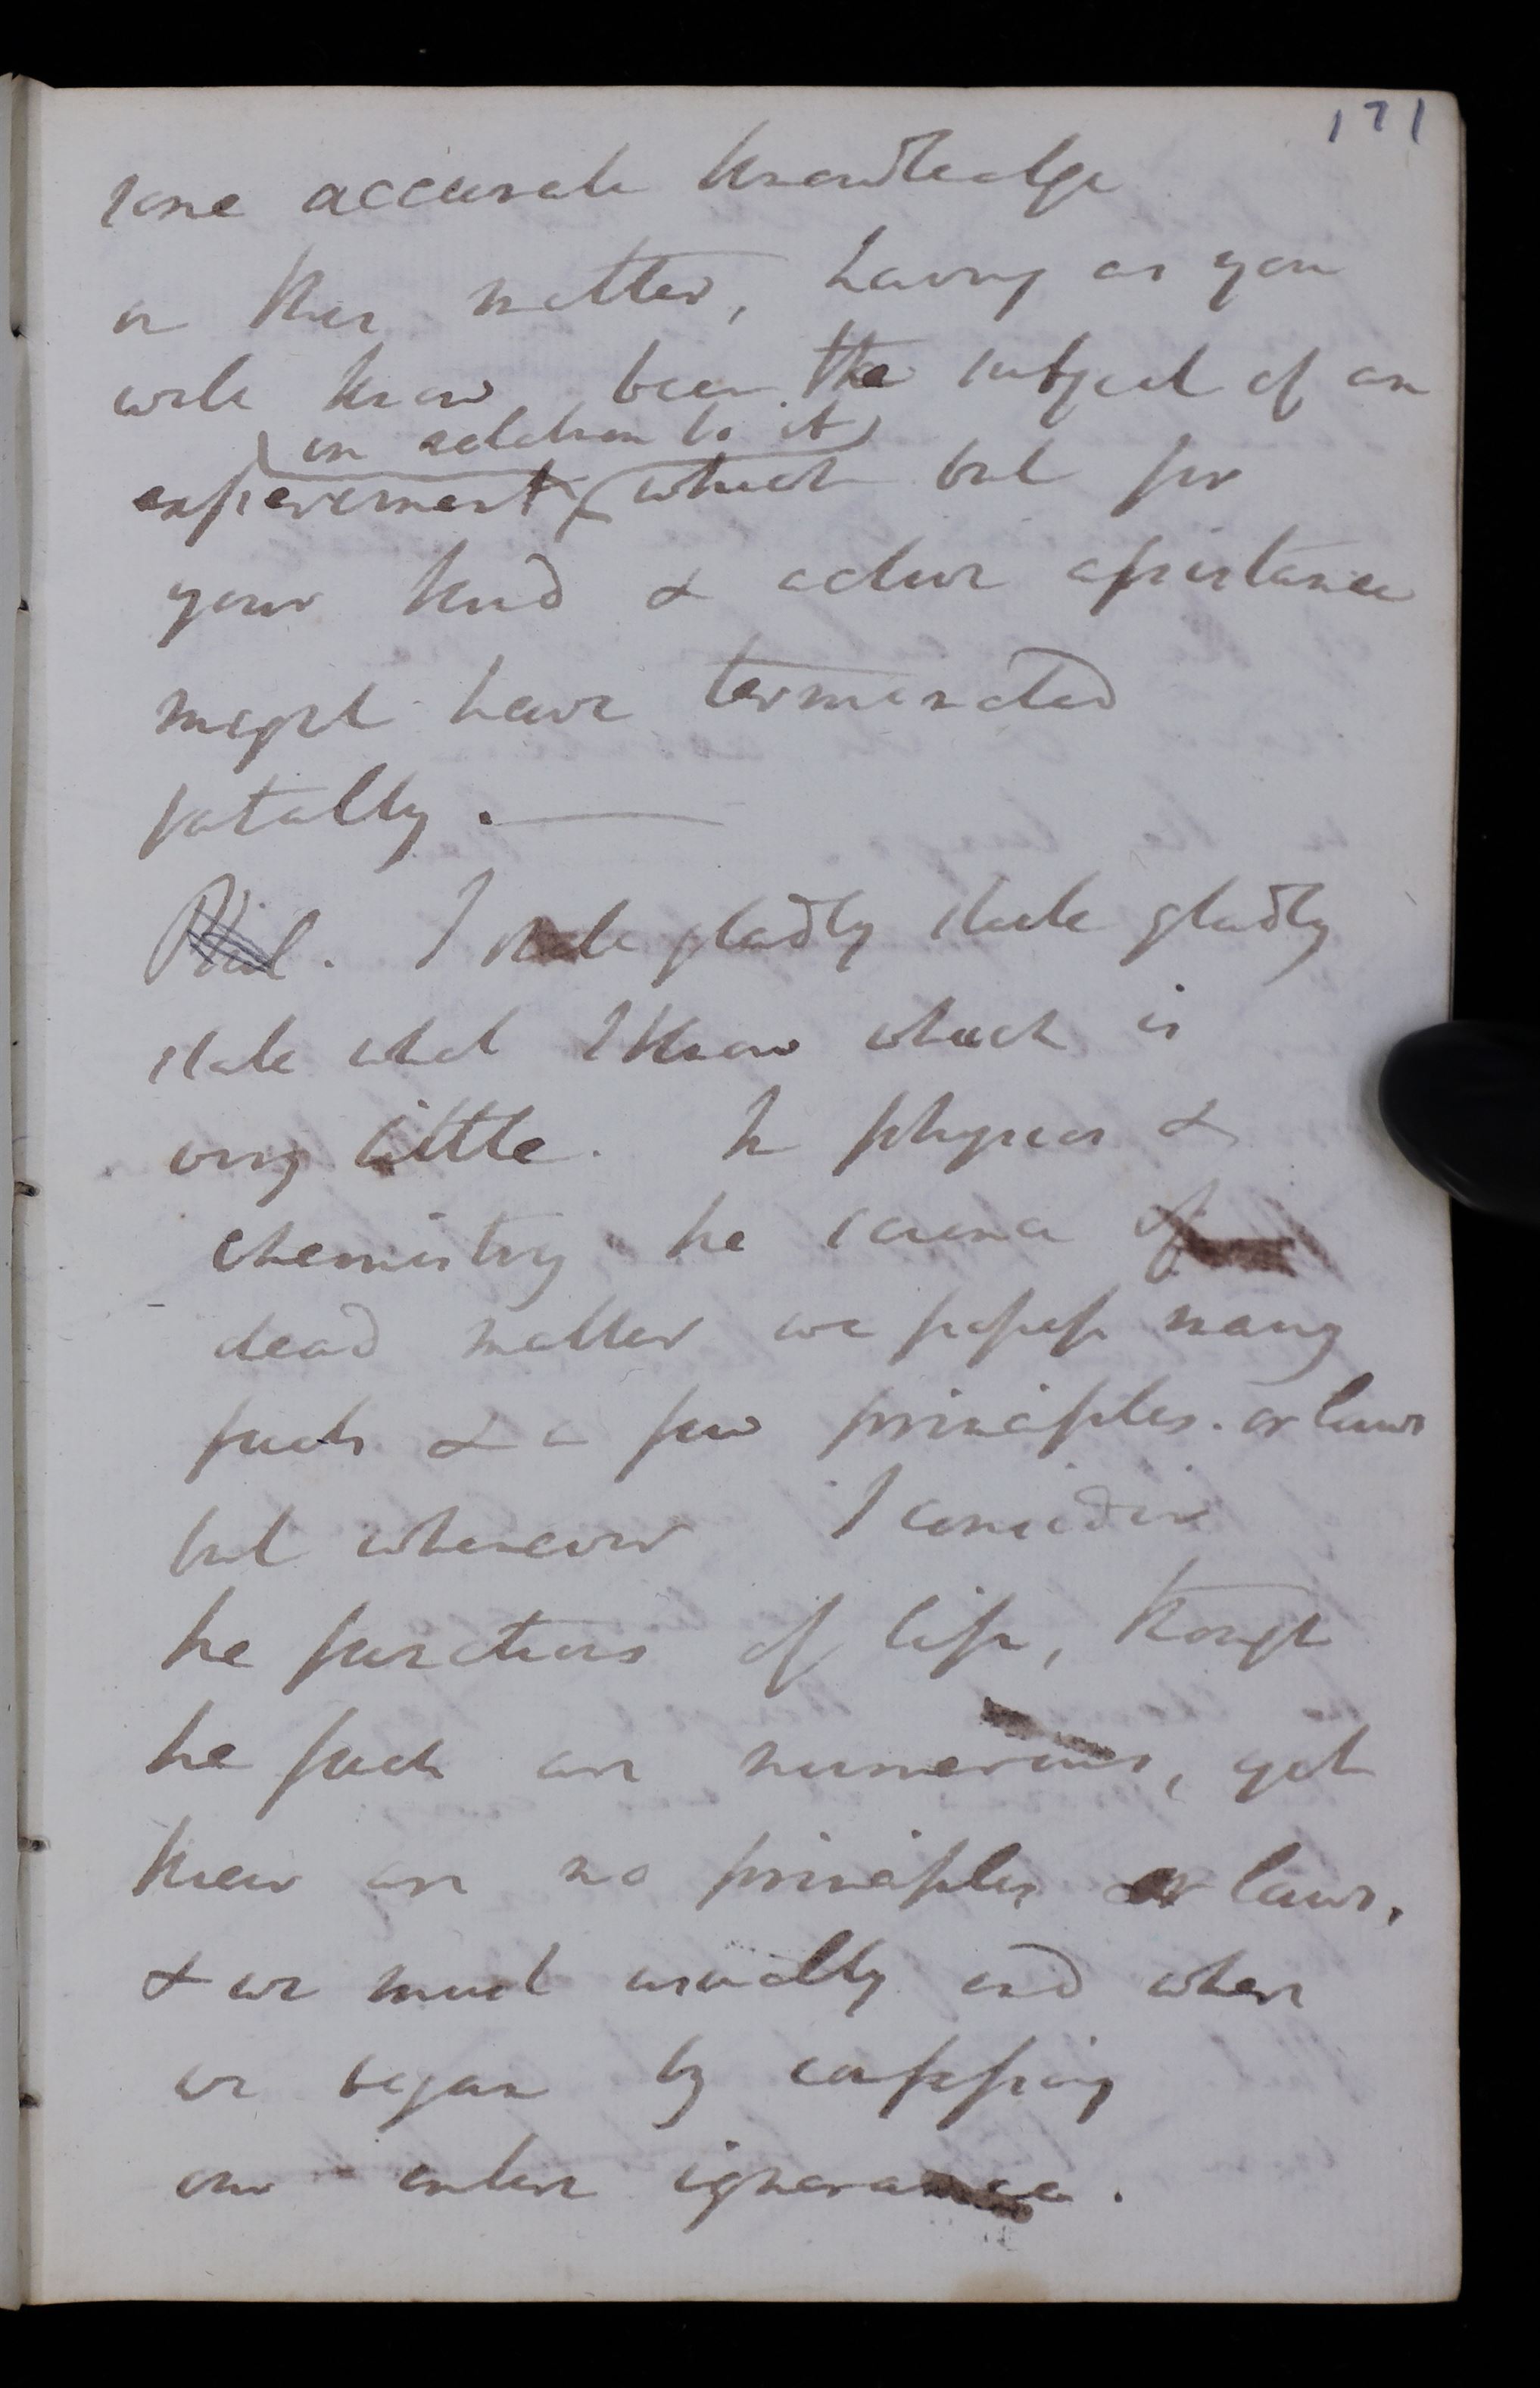 171
some accurate knowledge
on this matter, having as you
well know been the subject of an
in addition to it
experiment which but for
your kind & active assistance
might have terminated
fatally.
Phil. I state gladly state gladly
state what I know which is
very little. In physics &
chemistry the science of
dead matter we possess many
facts & a few principles. or laws
but whenever I consider
the functions of life, though
the facts are numerous, yet
there are no principles or laws,
& we must usually end where
we began by confessing
our entire ignorance.